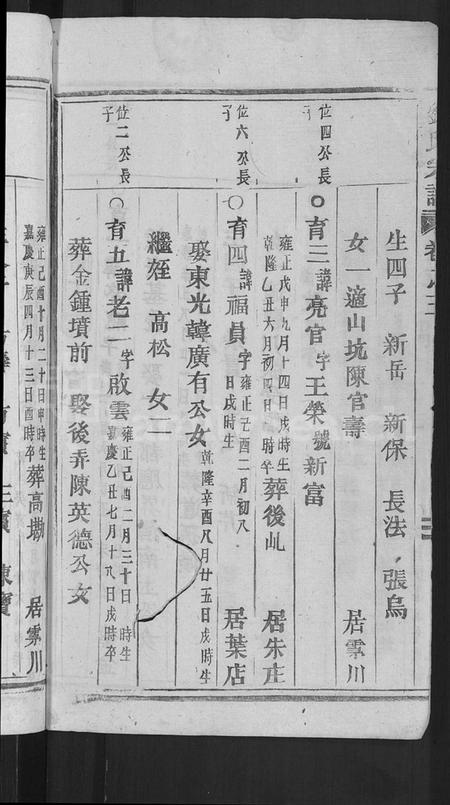 生四子 新岳 新保 長法 張烏
女一適山坑陳官壽 居雩川
位四公長子
育三諱亮官字王榮號新富
雍正戊申九月十四日戌時生
乾隆乙丑六月初四日時卒
葬後乢 居朱庄
位六公長子
育四諱福員字雍正己酉二月初八日戌時生 居葉店
娶東光韓廣有公女乾隆辛酉八月廿五日戌時生
繼姪高松 女二
位二公長子
育五諱老二字啟雲
雍正己酉二月三十日時生
嘉慶乙丑七月十八日戌時卒
葬金鍾墳前 娶後弄陳英德公女
雍正己酉十月二十日申時生
嘉慶庚辰四月十三日酉時卒
葬高塝 居雩川